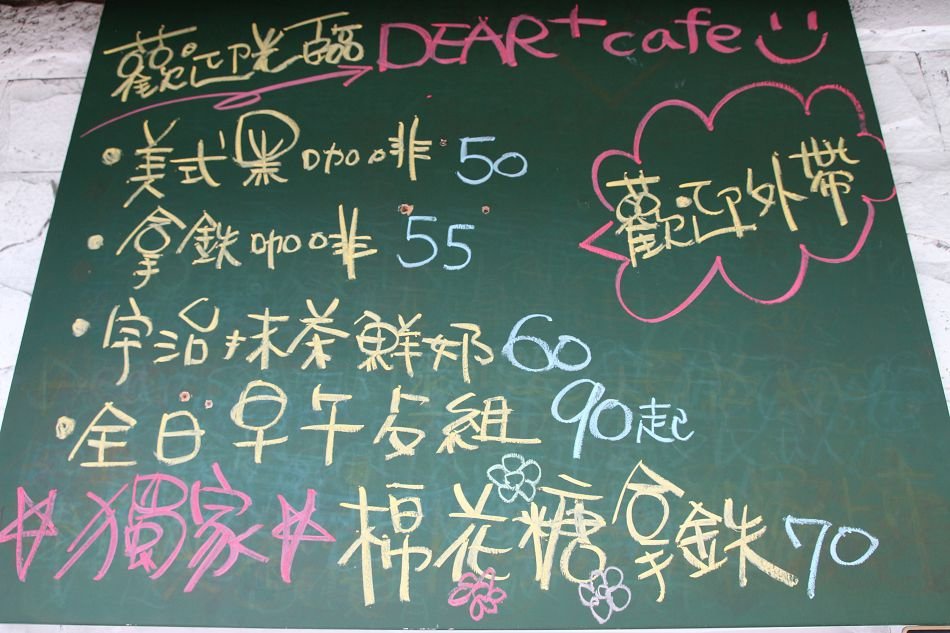 歡迎光臨 DEAR+ cafe
美式黑咖啡 50
歡迎外帶
拿鉄咖啡 55
宇治抹茶鮮奶 60
全日早午夕組 90起
☆獨家☆ 棉花糖拿鉄 70